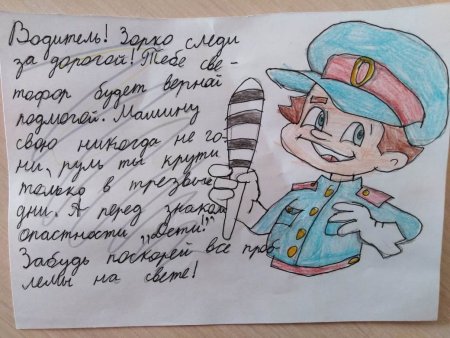 Водитель! Зорко следи
за дорогой! Тебе све-
тофор будет верной
подмогой. Машину
свою никогда не го-
ни, руль ты крути
только в трезвые
дни. А перед знаком
опастности „Дети!"
Забудь поскорей все проб
лемы на свете!